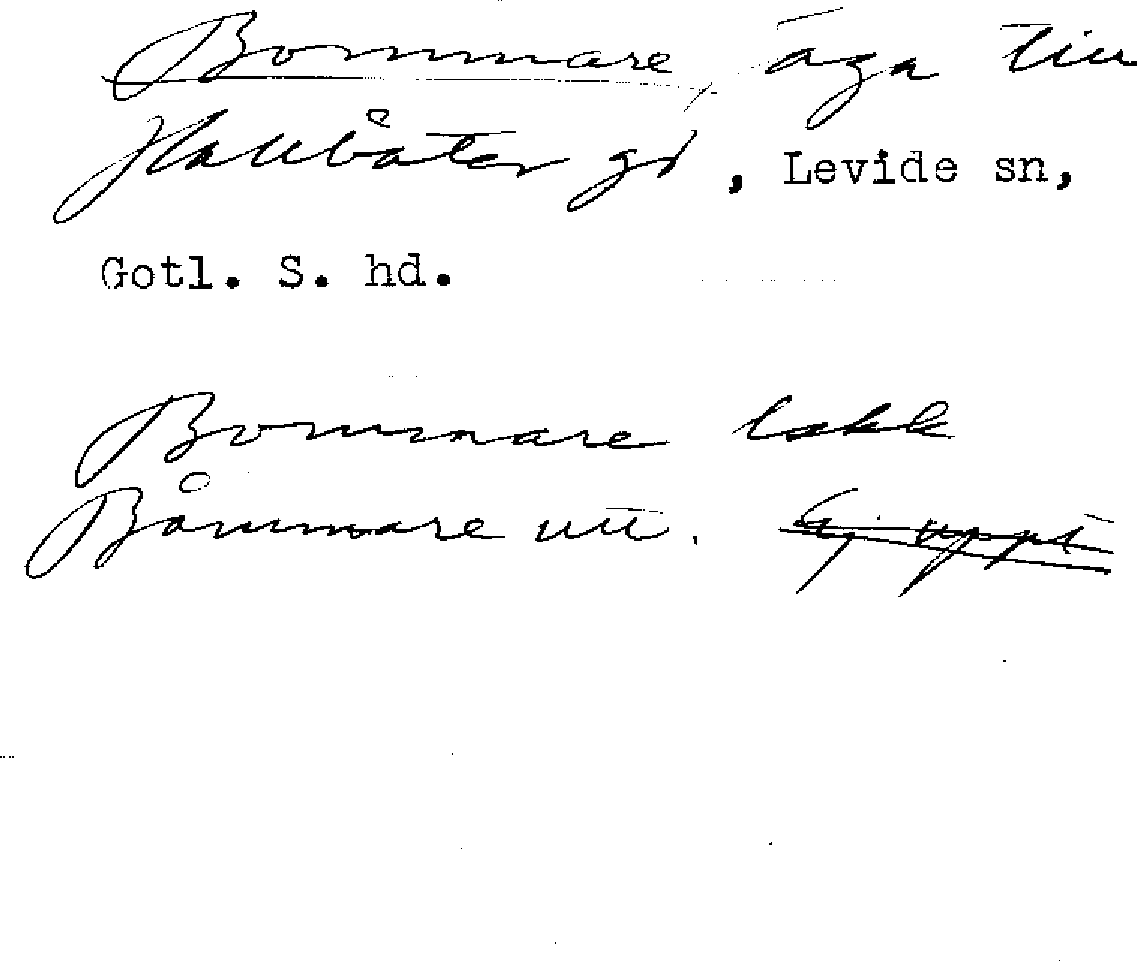 Bommare, äga till
Hallbåter gd, Levide sn,
Gotl. S. hd.
Bommare lskk
Båmmare utt. Ej uppt